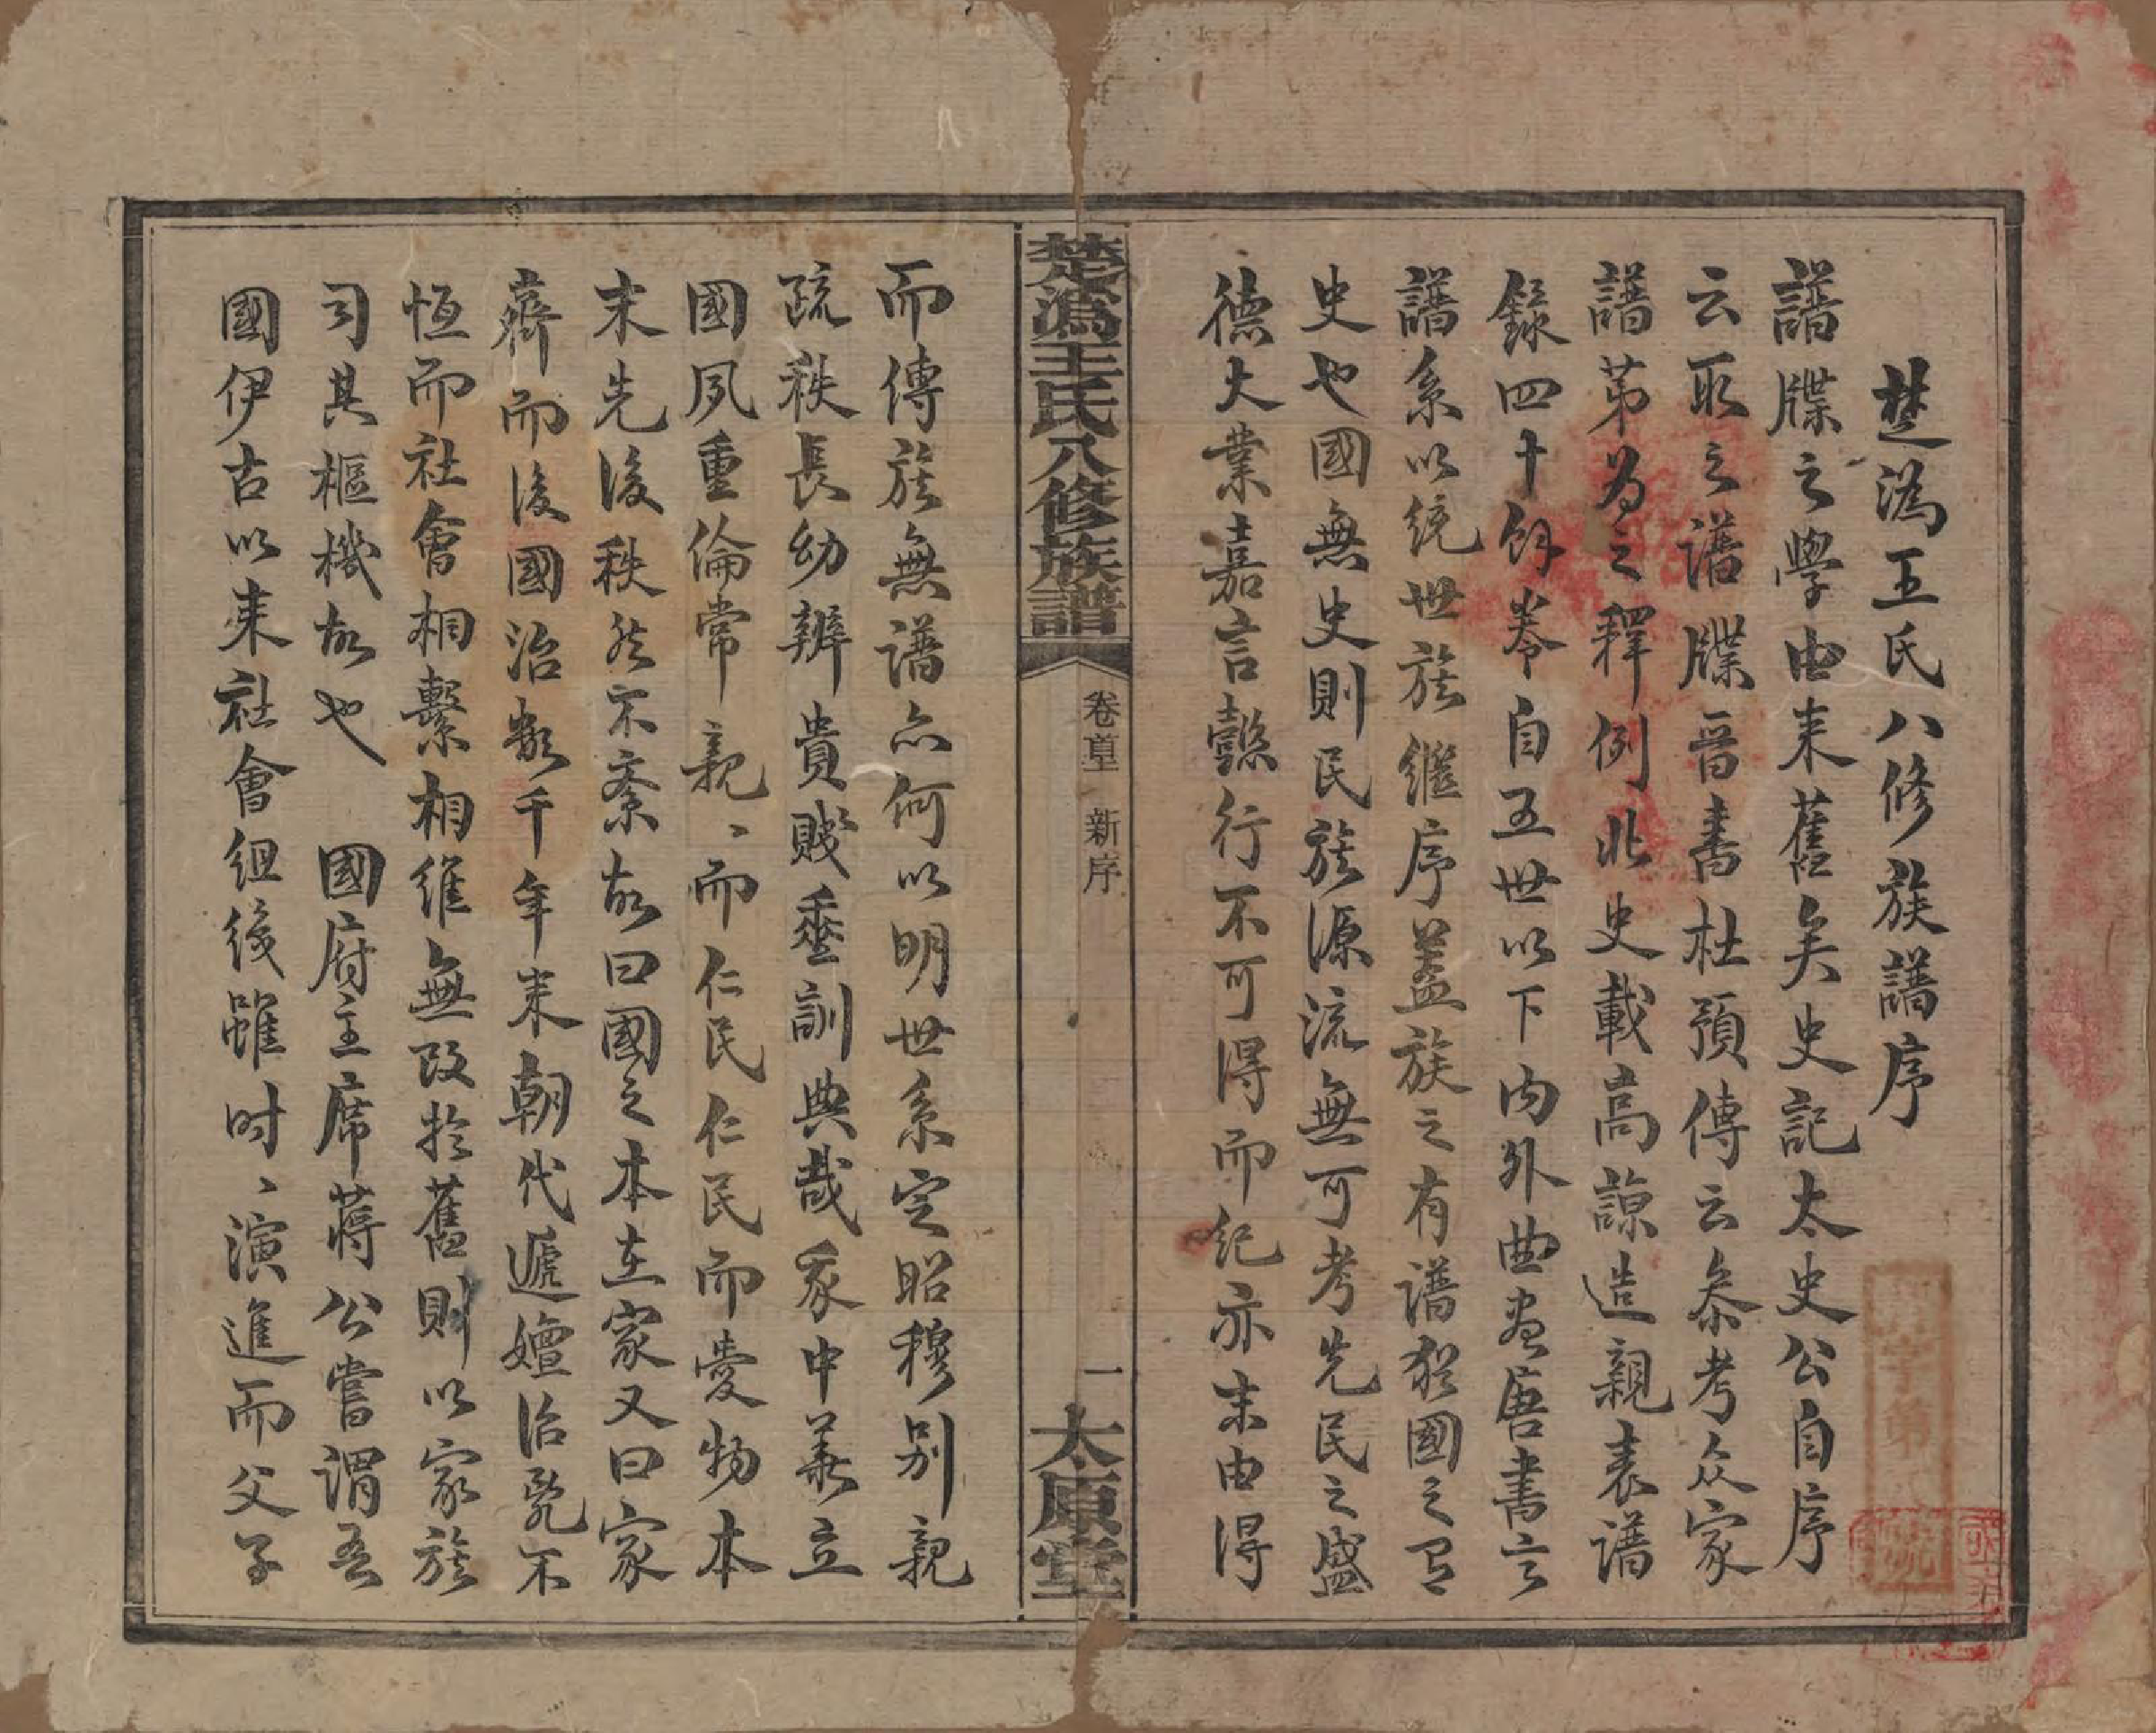 楚溈王氏八修族譜序
譜牒之學由来舊矣史記太史公自序
云取之譜牒晋書杜預傳云叅考众家
譜第为之釋例北史載高諒造親表譜
錄四十餘卷自五世以下内外曲盡唐書云
譜系以统世族继序盖族之有譜猶國之有
史也國無史則民族源流無可考先民之盛
德大業嘉言懿行不可得而纪亦末由得
楚溈王氏八修族譜
卷首
新序
一
太原堂
而傳族無譜亦何以明世系定昭穆别親
疏秩長幼辨貴賤垂訓典哉我中華立
國夙重倫常親、而仁民仁民而愛物本
末先後秩然不紊故曰國之本在家又曰家
齊而後國治数千年来朝代遞嬗治亂不
恆而社會相繫相維無改於舊則以家族
司其樞機故也　國府主席蒋公嘗謂吾
國伊古以来社會组後雖时、演進而父子